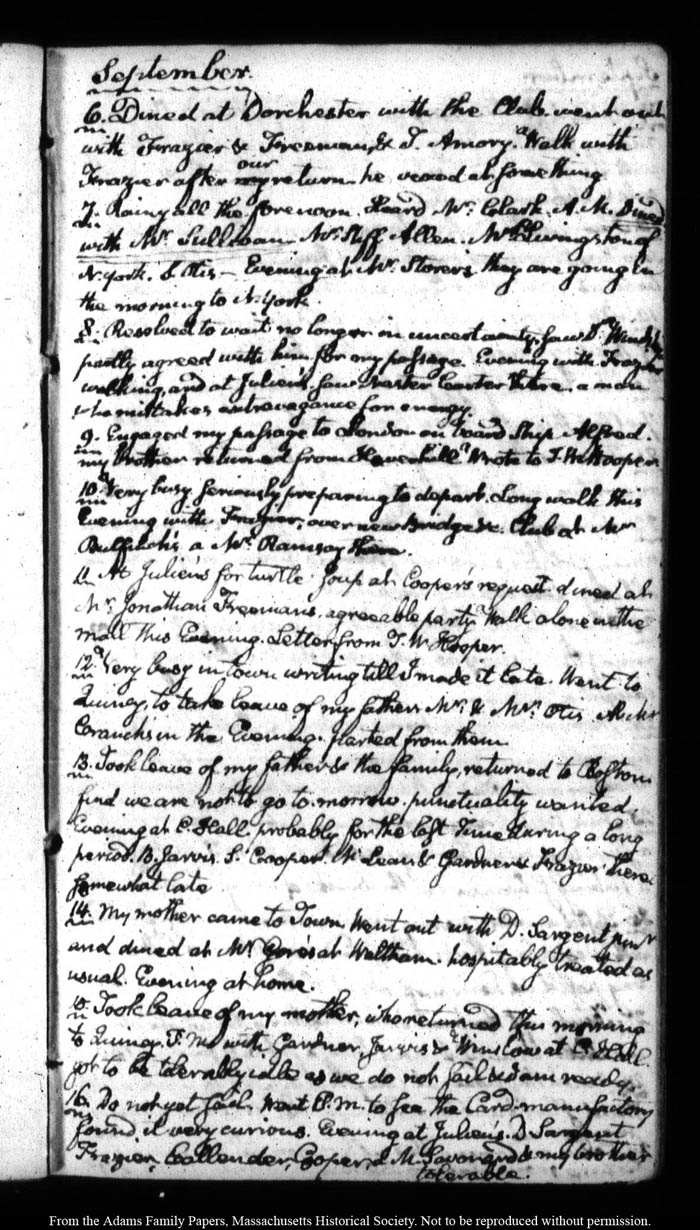 September.
6. Dined at Dorchester with the Club. went out
with Frazier & Freeman, & J. Amory. Walk with
Frazier after our return. he vexed at something
7. Rainy all the forenoon. Heard Mr. Clark A.M. Dined
with Mr. Sullivan. Mr. Allen. Mr. Livingston of
N. York. & Otis — Evening at Mr. Storer's they are going in
the morning to N. York.
8. Resolved to wait no longer in uncertainty. saw Dr.
partly agreed with him for my passage. Evening with Frazier
walking, and at Julien's. saw Carter there. a man
who mistakes extravagance for energy.
9. Engaged my passage to London on board Ship Alfred.
my Brother returned from Haverhill. Wrote to J. W. Hooper
10. Very busy seriously preparing to depart. Long walk this
Evening with Frazier, over new Bridge &c. Club at Mr
Bulfinch's a Mr. Ramsay there.
11. At Julien's for turtle soup at Cooper's request. dined at
Mr. Jonathan Freeman's. agreeable party. Walk alone in the
mall this Evening. Letter from J. W. Hooper.
12. Very busy in town writing till I made it late. Went to
Quincy, to take leave of my father. Mr. & Mrs. Otis. At Mr
Cranch's in the Evening. parted from them
13. Took leave of my father & the family, returned to Boston
find we are not to go to-morrow. punctuality wanted.
Evening at C. Hall. probably for the last Time during a long
period. B. Jarvis. S. Cooper. & Gardner & Frazier there.
somewhat late
14. My mother came to Town. Went out with D. Sargent
and dined at Mr. Gore's at Waltham. hospitably treated as
usual. Evening at home.
15. Took leave of my mother, who returned this morning
to Quincy. with Gardner, Jarvis & Winslow at C. Hall.
got to be tolerably idle as we do not sail & I am ready.
16. Do not yet sail. Went P.M. to see the Card-manufactory
found it very curious. Evening at Julien's. D Sargent
Frazier, Callender, Cooper, & my brother
tolerable.
From the Adams Family Papers, Massachusetts Historical Society. Not to be reproduced without permission.